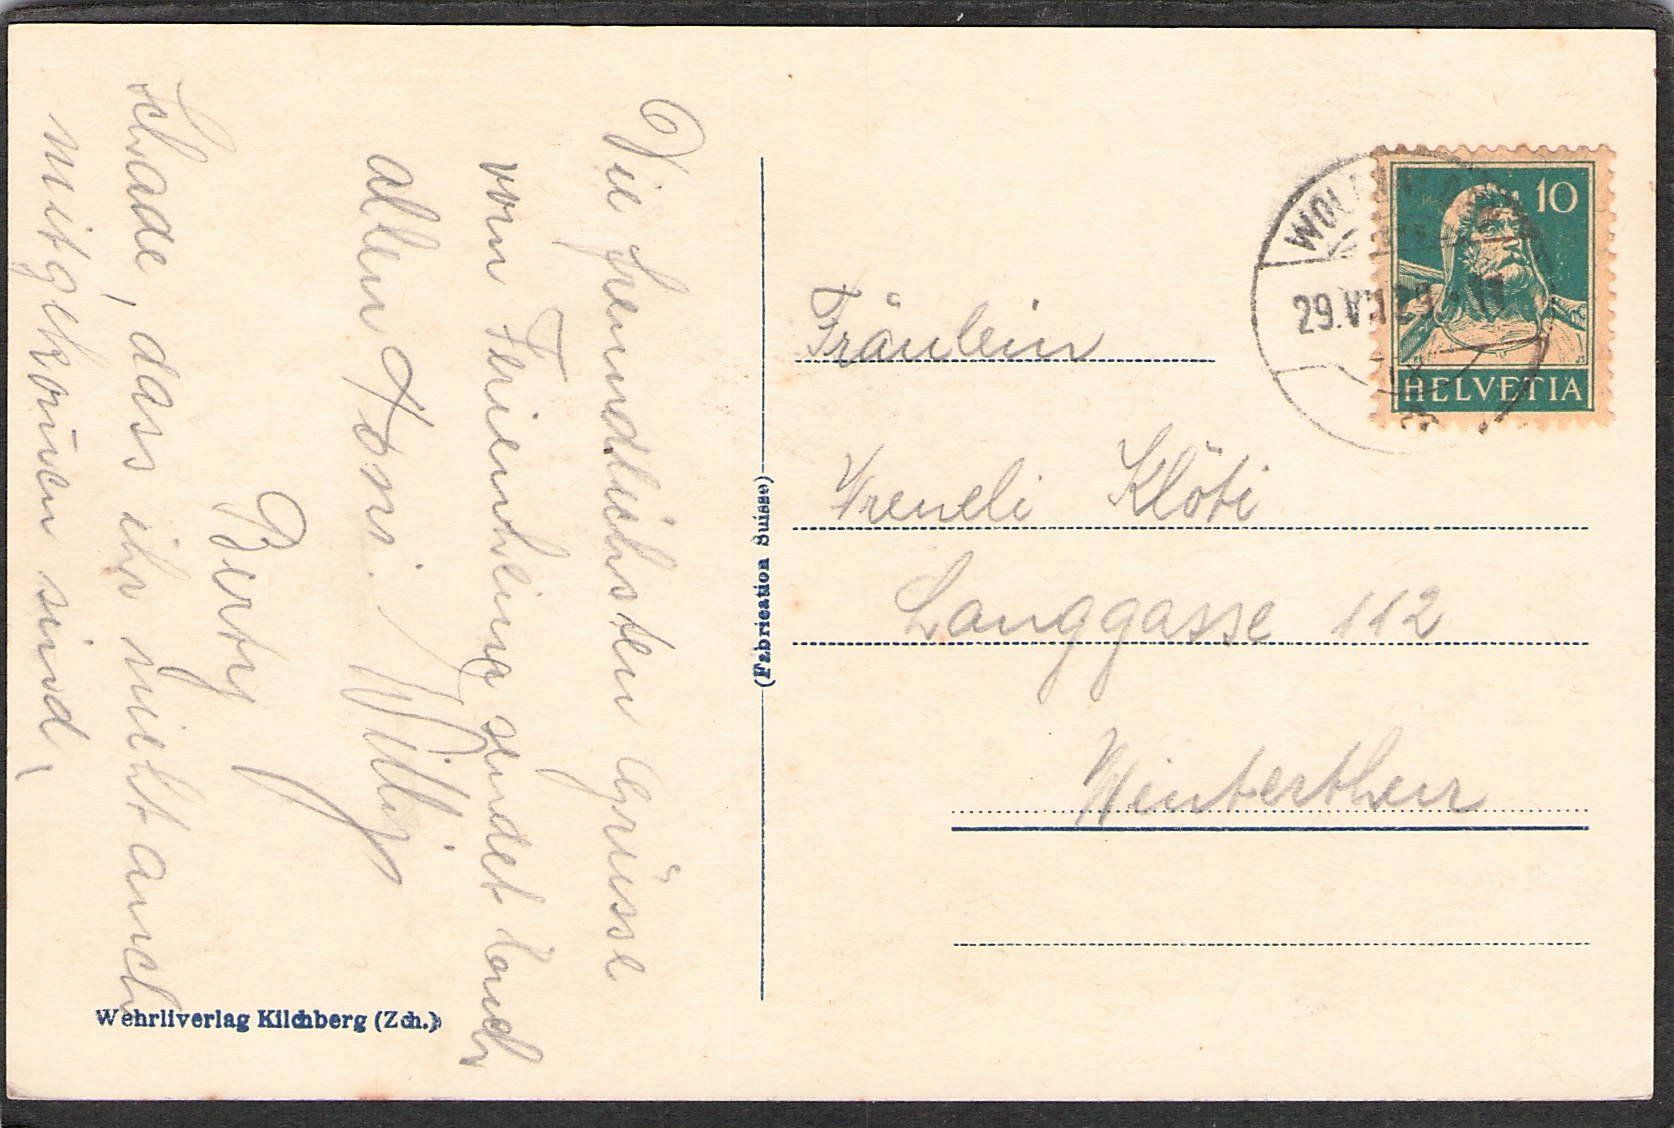 Die freundlichsten Grüsse
vom Ferienheim sendet Euch
allen Toni. Willy
Berty
schade, dass ihr nicht auch
mitgekom̄en sind,
Wehrliverlag Kilchberg (Zch.)
(Fabrication Suisse)
10
HELVETIA
29.VII.29.
Fräulein
Vreneli Klöti
Langgasse 112
Winterthur